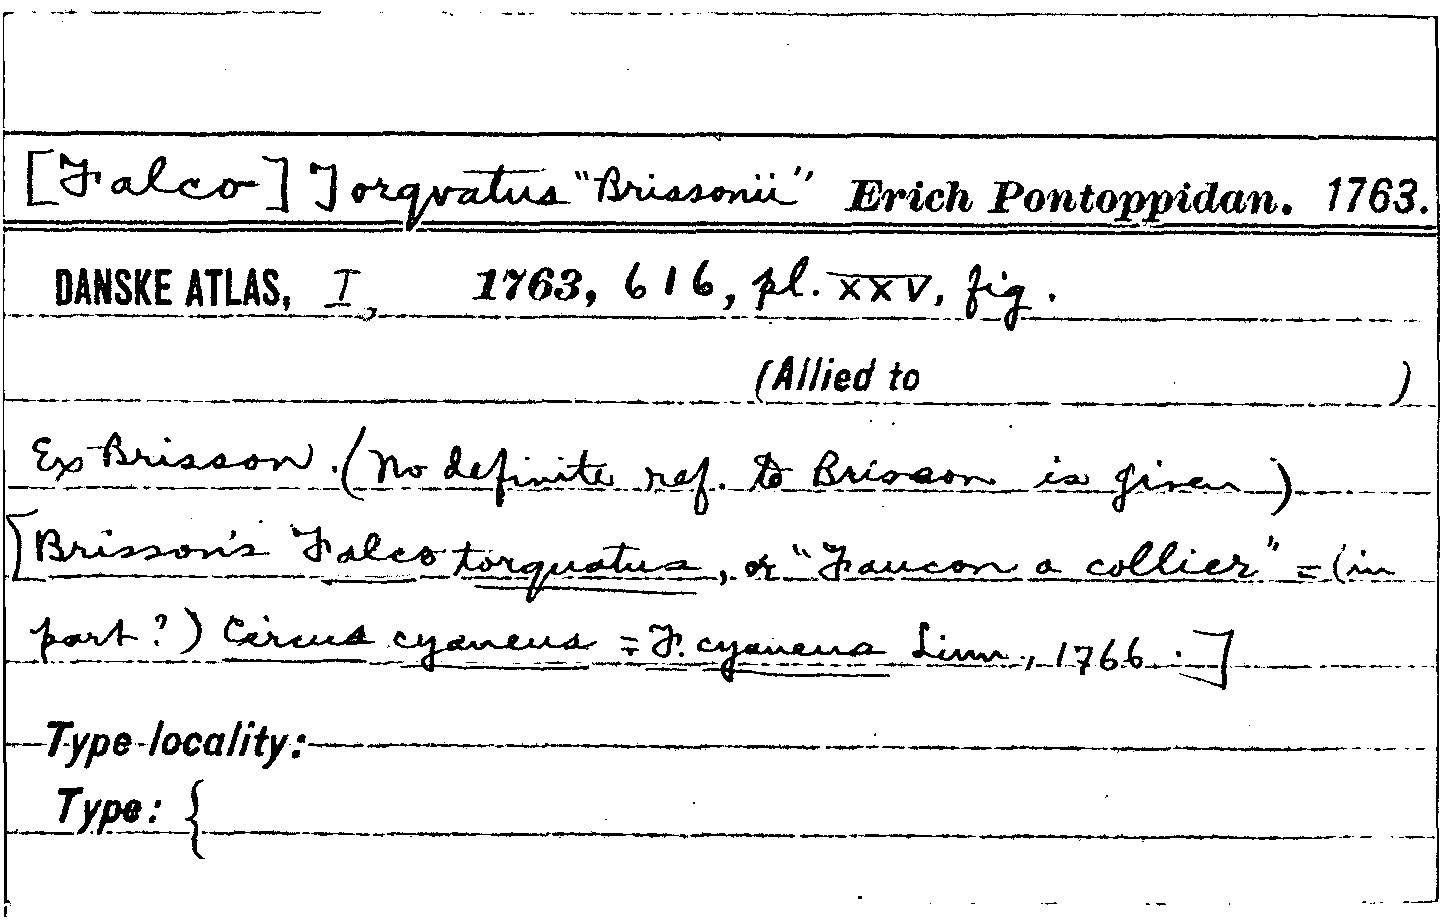 [Falco] Torqvatus "Brissonii" Erich Pontoppidan. 1763.
DANSKE ATLAS, I, 1763, 616, pl. XXV, fig.
(Allied to )
Ex Brisson. (No definite ref. to Brisson is given)
[Brisson's Falco torquatus, or "Faucon a collier" = (in
part?) Circus cyaneus = F. cyaneus Linn., 1766.]
Type locality:
Type: {